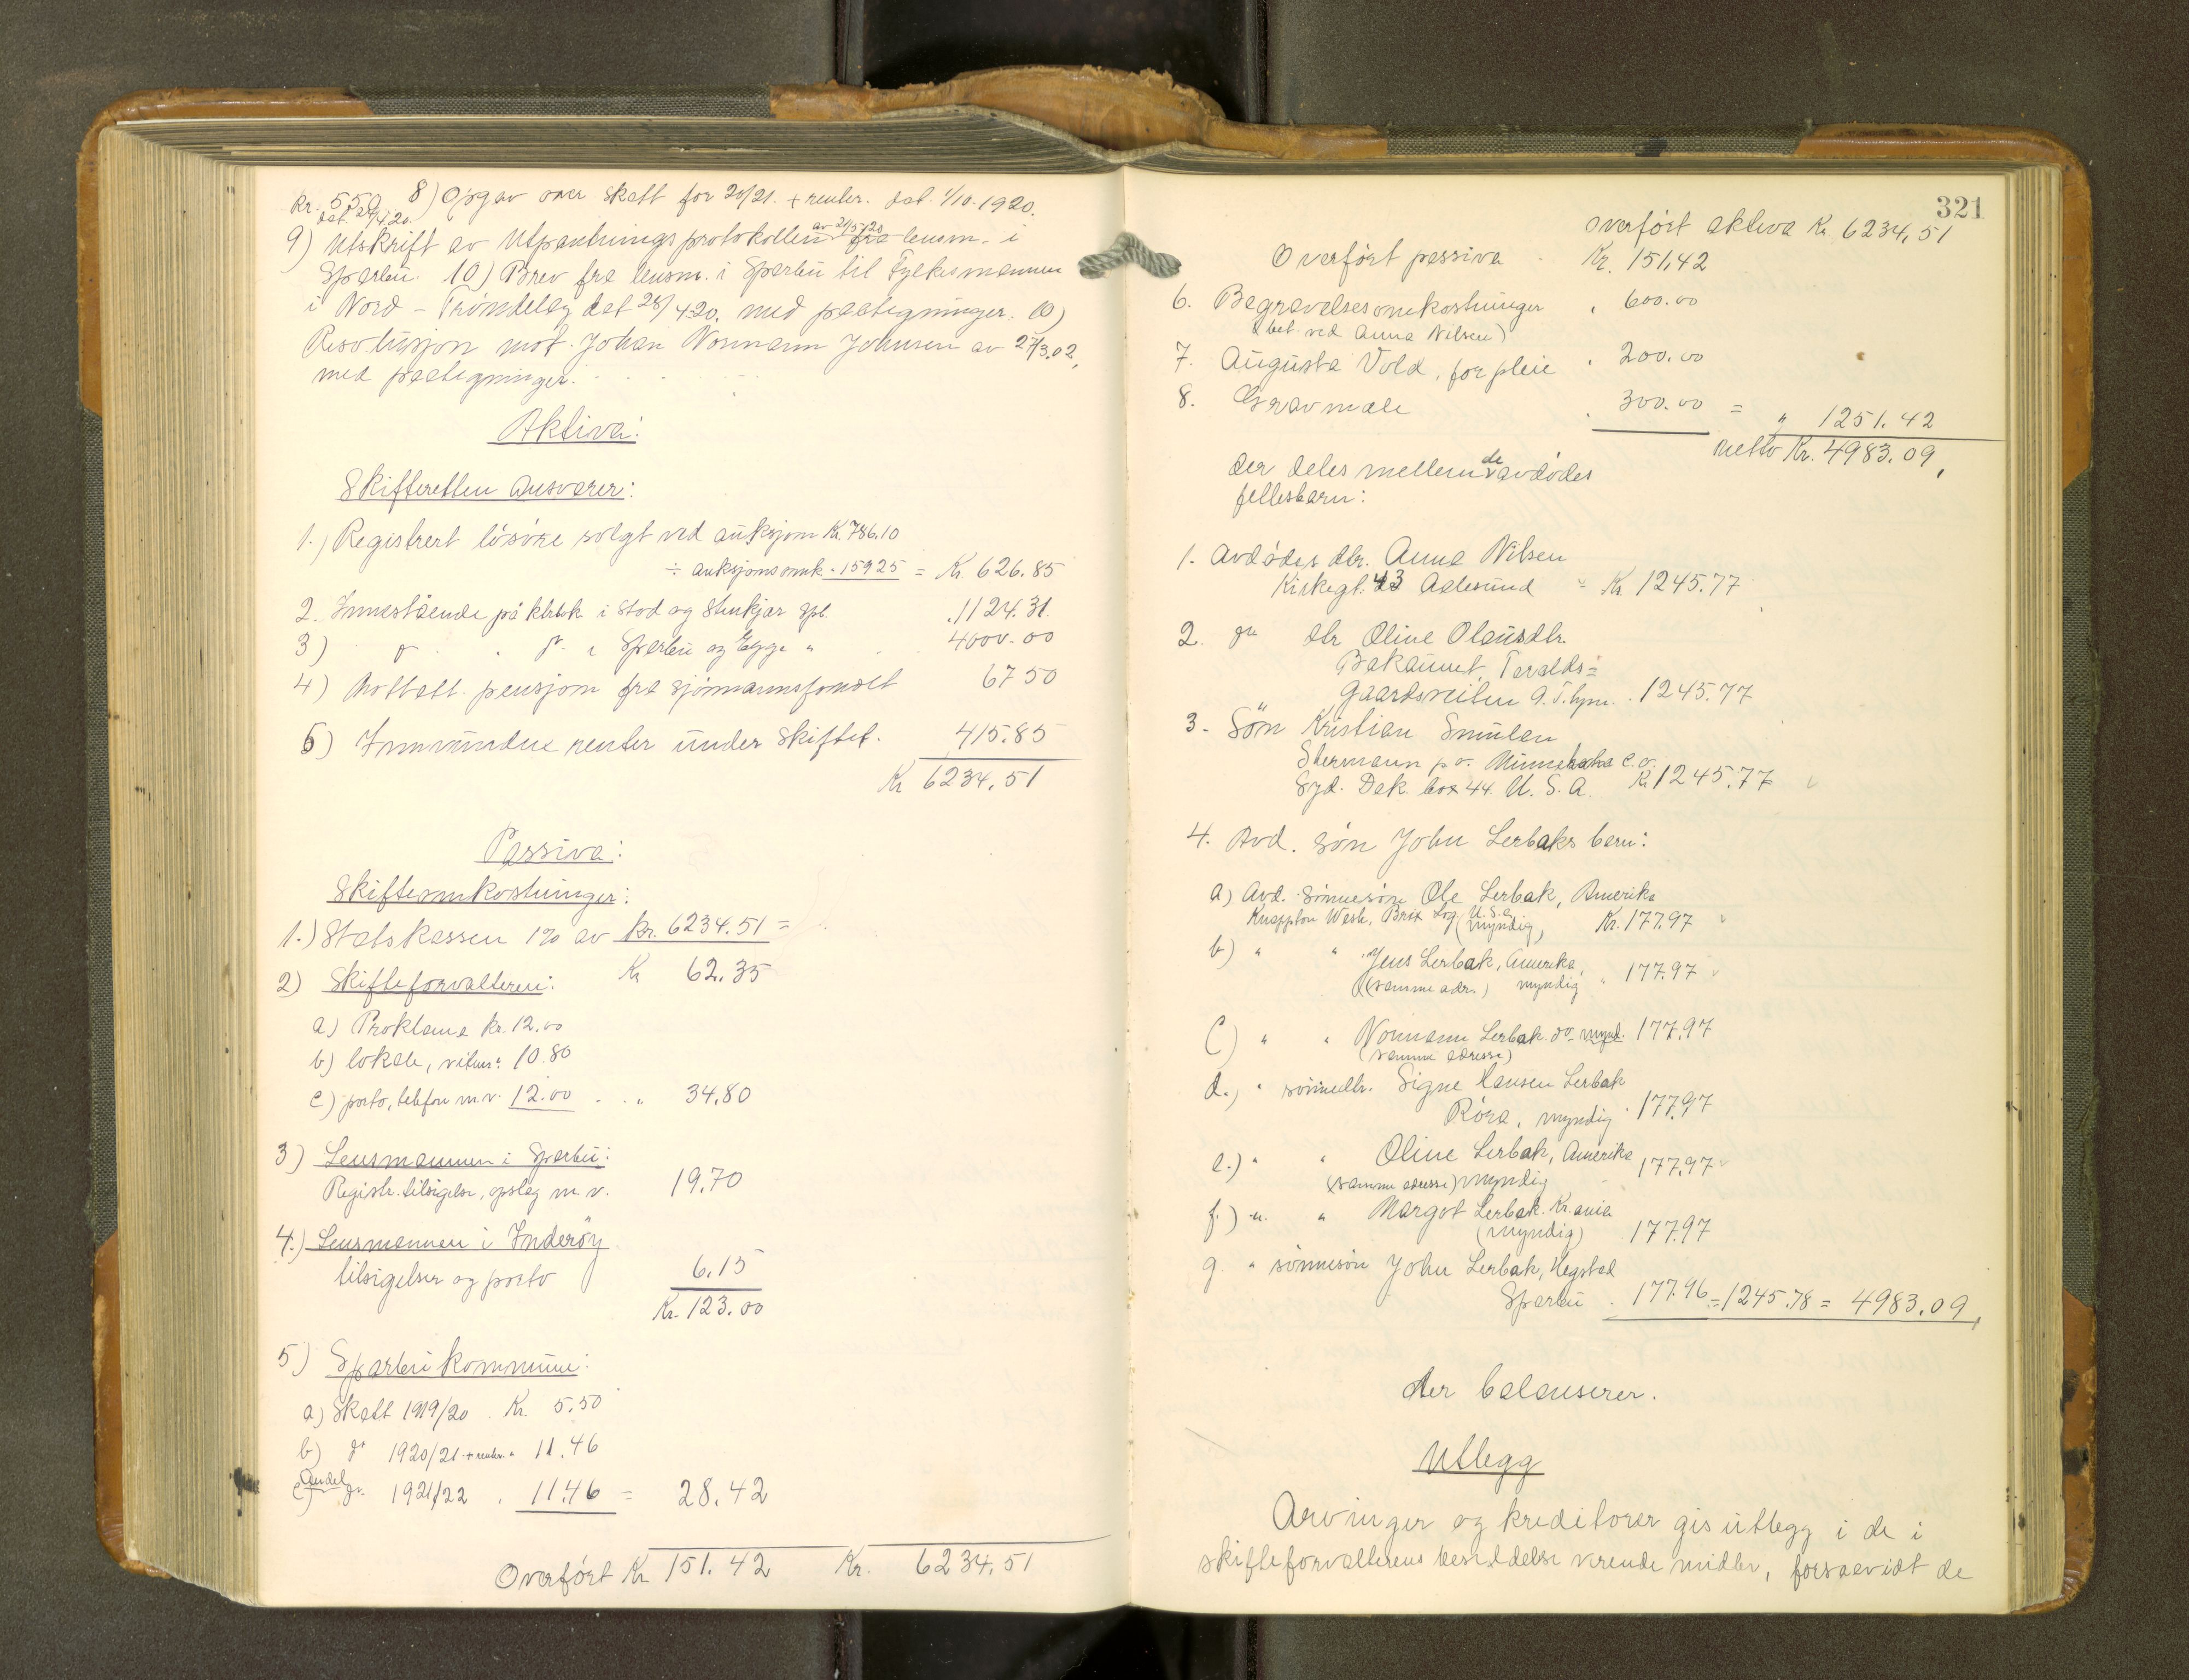 Kr. 550 8) Opgav over skatt for 20/21. + renter. dat. 1/10. 1920.
dat. 29/4 20.
9) Utskrift av Utpantningsprotokollen av 21/5 20 fra lensm. i
Sparbu. 10) Brev fra lensm. i Sparbu til Fylkesmannen
i Nord-Trøndelag dat 28/4 20. med paategninger. 10)
Resolusjon mot Johan Normann Johnsen av 27/3.02,
med paategninger.
Aktiva:
Skifteretten ansvarer:
1.) Registrert løsøre solgt ved auksjon Kr. 786.10
÷ auksjonsomk. " 159 25 = Kr. 626.85
2. Innestående på kl.bok i Stod og Stenkjær spb. " 1124.31
3) do " do i Sparbu og Egge " 4000.00
4) Mottatt pensjon fra sjømannsfondet 67 50
5) Innvundne renter under skiftet. 415.85
Kr 6234.51
Passiva:
Skifteomkostninger:
1.) Statskassen 1% av kr. 6234.51 =
Kr 62.35
2) Skifteforvalteren:
a) Proklama kr. 12.00
b) lokale, vitner " 10.80
c) porto, telefon m.v. 12.00 . . " 34.80
3) Lensmannen i Sparbu:
Registr. tilsigelse, opslag m. v. 19.70
4.) Lensmannen i Inderøy
tilsigelser og porto 6.15
Kr. 123.00
5) Sparbu kommune:
a) Skatt 1919/20 . Kr. 5.50
b) do 1920/21 + renter " 11.46
c) Andel do 1921/22 . 11.46 = 28.42
Overført Kr 151.42 Kr. 6234.51
321
Overført aktiva Kr. 6234,51
Overført passiva . Kr. 151,42
6. Begravelsesomkostninger " 600.00
(bet. ved Anna Nilsen)
7. Augusta Vold, for pleie " 200.00
8. Gravmæle . 300.00 = " 1251.42
netto Kr. 4983.09,
der deles mellem de avdødes
fellesbarn:
1. Avdødes dtr. Anna Nilsen
Kirkegt. 43 Aalesund " Kr. 1245.77
2. do dtr Oline Olausdtr.
Bakaunet, Taralds=
gaardsveiten 9. T.hjm. . 1245.77
3. Søn Kristian Smulan
Shermann p.o. Minnehaha C.o.
Syd. Dak. box 44. U. S. A. Kr 1245.77
4. Avd. søn John Lerbaks barn:
a) Avd. sønnesøn Ole Lerbak, Amerika
Knappton Wash, Brix Log U.S.A. (myndig) Kr. 177.97
b) " " Jens Lerbak, Amerika,
(samme adr.) myndig " 177.97
c) " " Normann Lerbak do mynd. 177.97
(samme adresse)
d.) " sønnedtr. Signe Hansen Lerbak
Røra, myndig " 177.97
e.) " " Oline Lerbak, Amerika 177.97
(samme adresse) myndig
f.) " " Margot Lerbak. Kr.ania
(myndig) 177.97
g. " sønnesøn John Lerbak, Hegstad
Sparbu . 177.96 = 1245.78 = 4983.09,
der balanserer.
Utlegg
Arvinger og kreditorer gis utlegg i de i
skifteforvalterens besiddelse værende midler, forsaavidt de